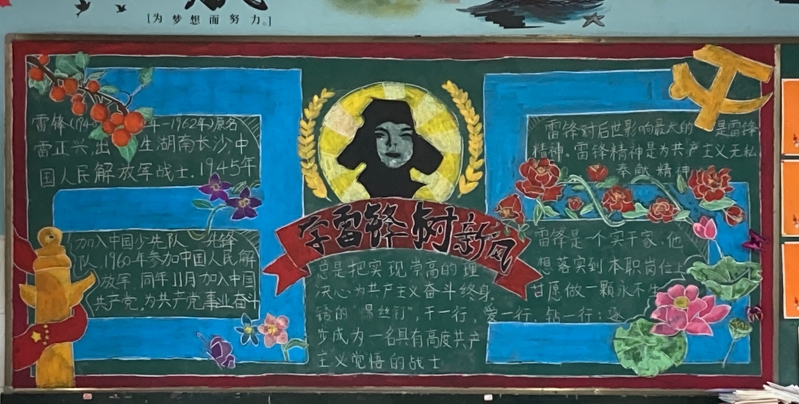 [为梦想而努力。]
雷锋(19 年—1962年)原名
雷正兴,出生湖南长沙,中
国人民解放军战士.1945年
加入中国少先队 先锋
队,1960年参加中国人民解
放军 同年11月加入中国
共产党,为共产党事业奋斗
学雷锋树新风
总是把实现崇高的理
决心为共产主义奋斗终身
锈的“螺丝钉”,干一行,爱一行,钻一行;逐
步成为一名具有高度共产
主义觉悟的战士
雷锋对后世影响最大的 是雷锋
精神。雷锋精神是为共产主义无私
奉献 精神
雷锋是一个实干家.他
想落实到本职岗位上
甘愿做一颗永不生